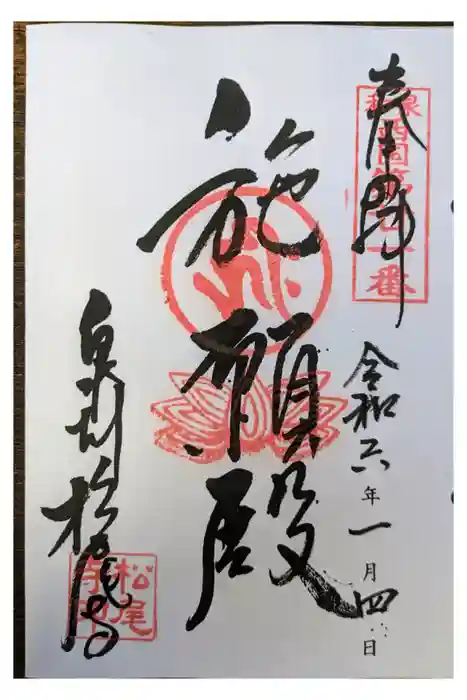 奉拝
和泉西国第二十一番
令和六年一月四日
施願殿
泉州松尾寺
松尾寺印